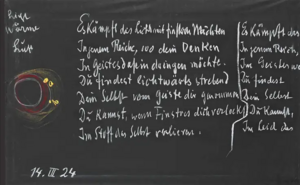 Licht
Wärme
Luft
Es kämpft das Licht mit finstren Mächten
In jenem Reiche, wo dein Denken
In Geistesdasein dringen möchte.
Du findest lichtwärts strebend
Dein Selbst vom Geiste dir genommen
Du kannst, wenn Finstres dich verlockt,
Im Stoff das Selbst verlieren.
Es kämpft das
In jenem Reich
Du findest
Dein Selbst
Du kannst,
14. III 24